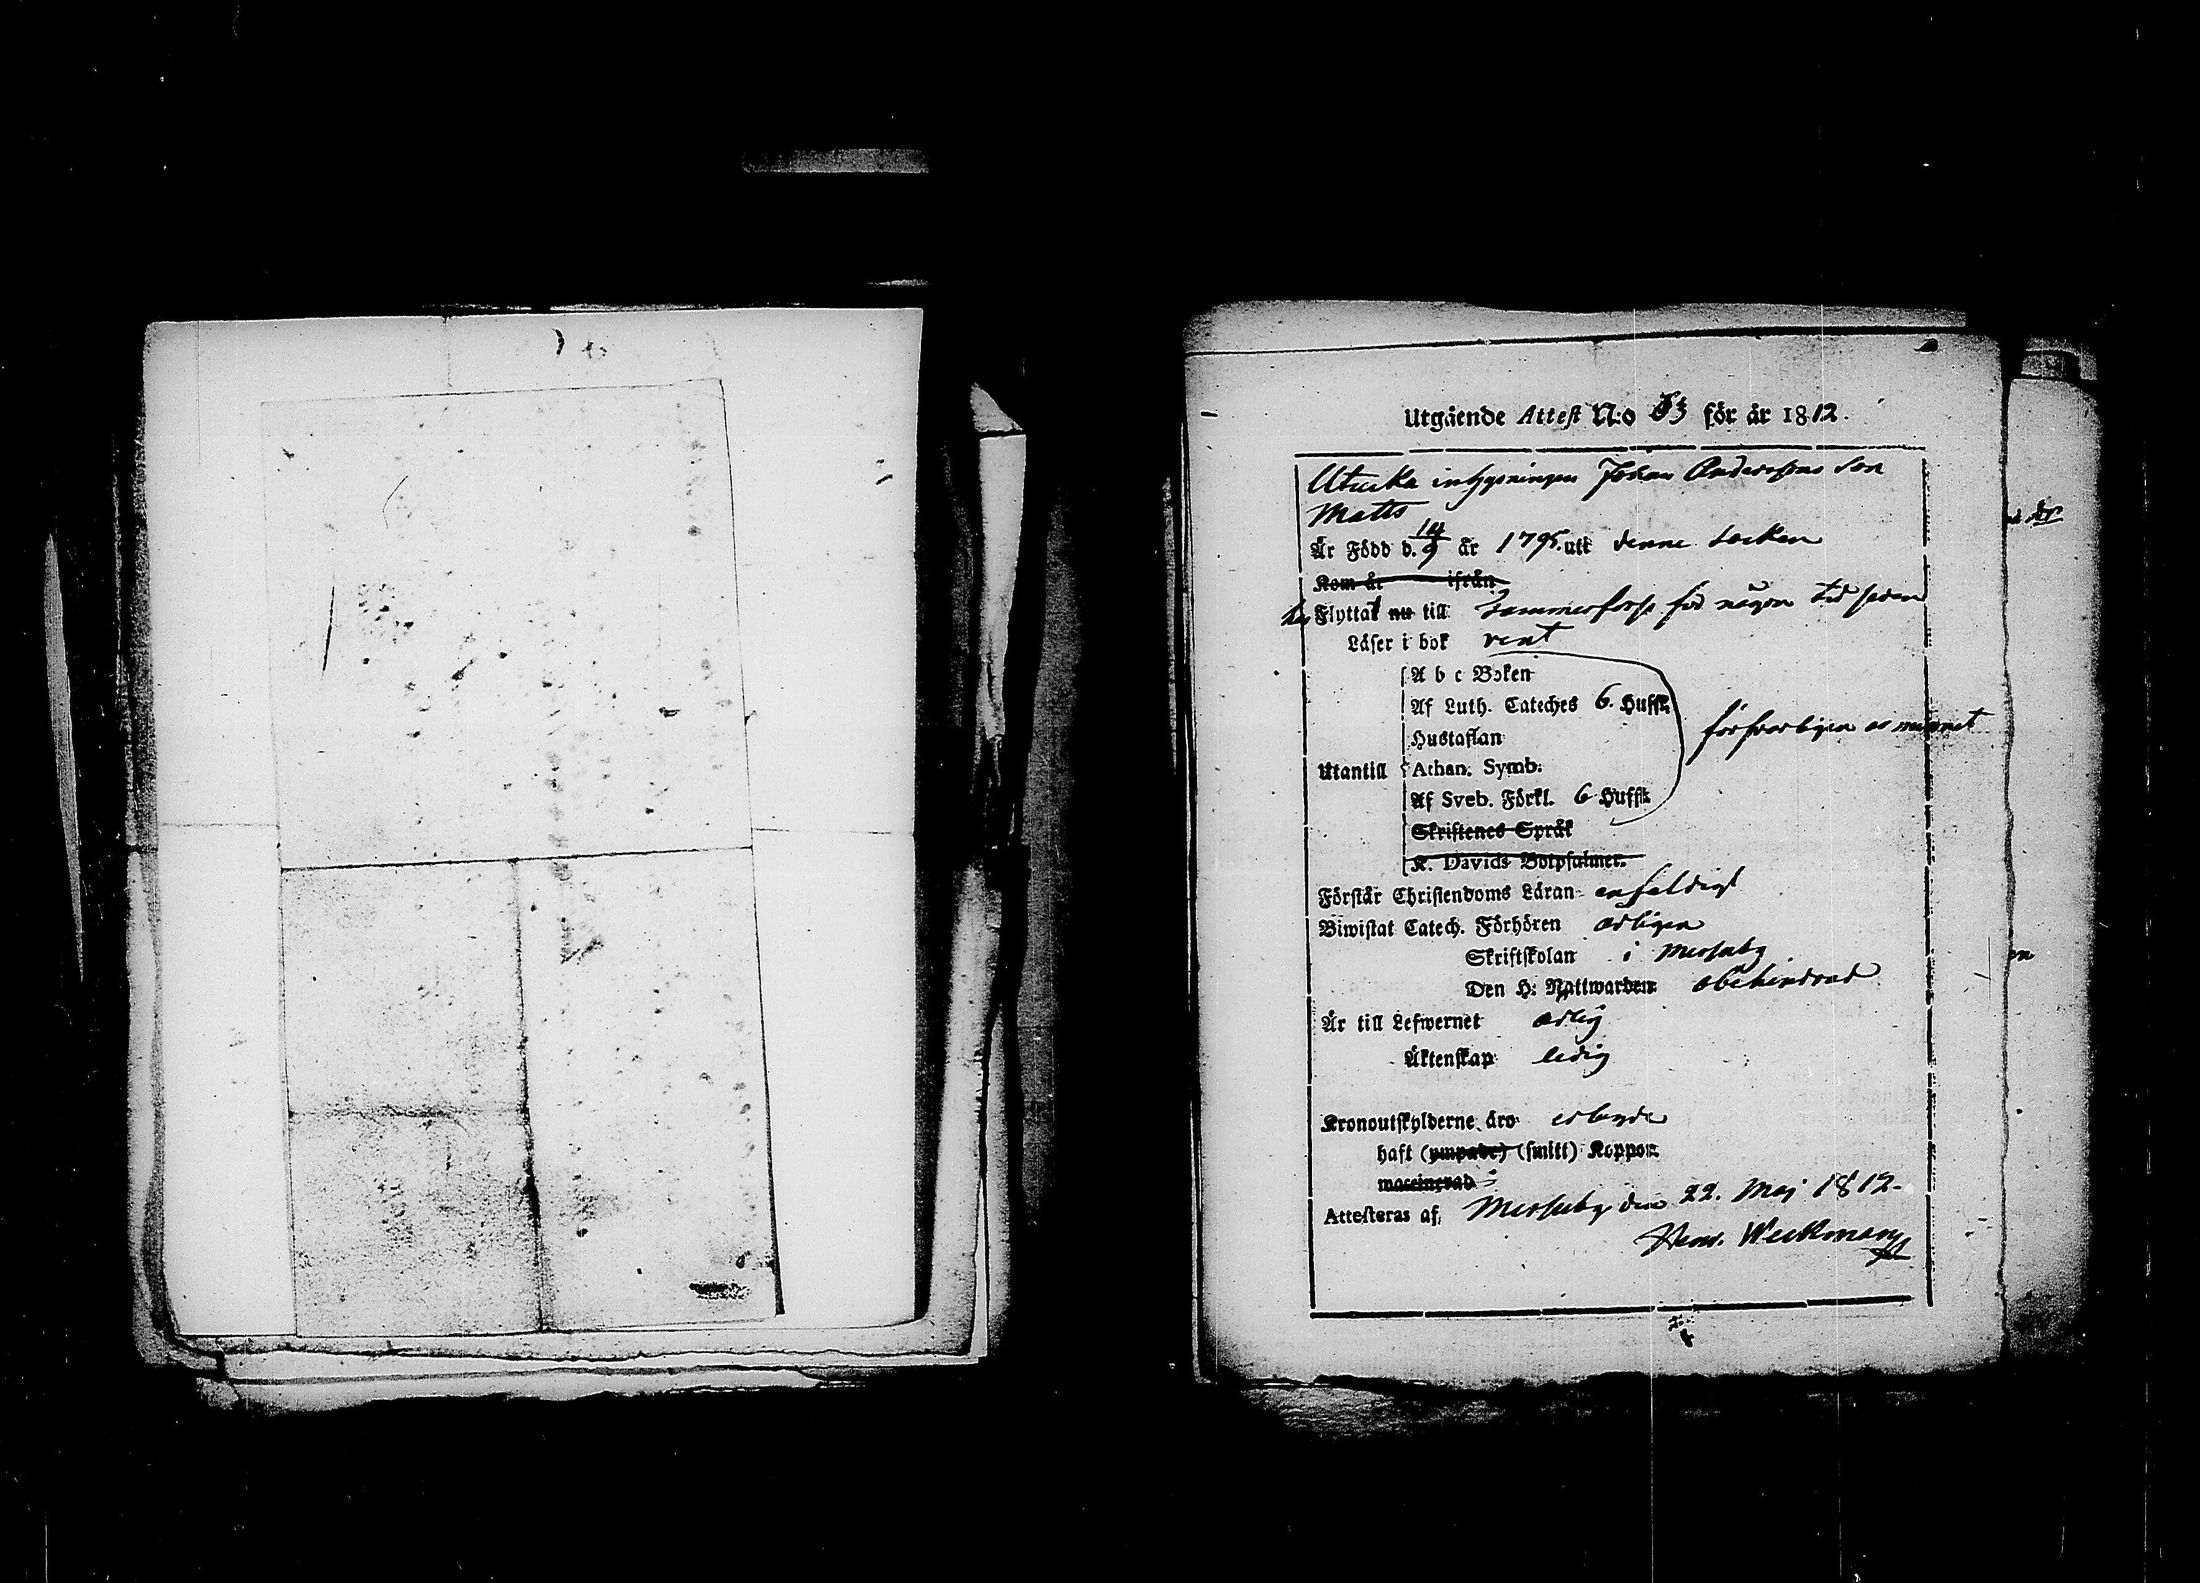 Utgående Attest N:o 53 för år 1812.
inhysningen Johan Anderssons Son
Matts
Är Född d. 14/9 år 1795. uti denne Socken
Kom år ifrån
har Flyttat nu till Tammerfors för någon tid sedan
Läser i bok rent
A b c Boken
Af Luth. Cateches 6. Huffst.
Hustaflan
försvarligen ur minnet
Utantill Athan. Symb.
Af Sveb. Förkl. 6 Huffst.
Skriftenes Språk
K. Davids Botpsalmer.
Förstår Christendoms Läran enfaldigt
Biwistat Catech. Förhören årligen
Skriftskolan i Messuby
Den H. Nattwarden obehindrad
Är till Lefwernet ärlig
Äktenskap ledig
Kronoutskylderne äro erlagde
haft (ympade) (smitt) Koppor.
waccinerad
Attesteras af. Messuby den 22. Maj 1812.
Henr. Weckman